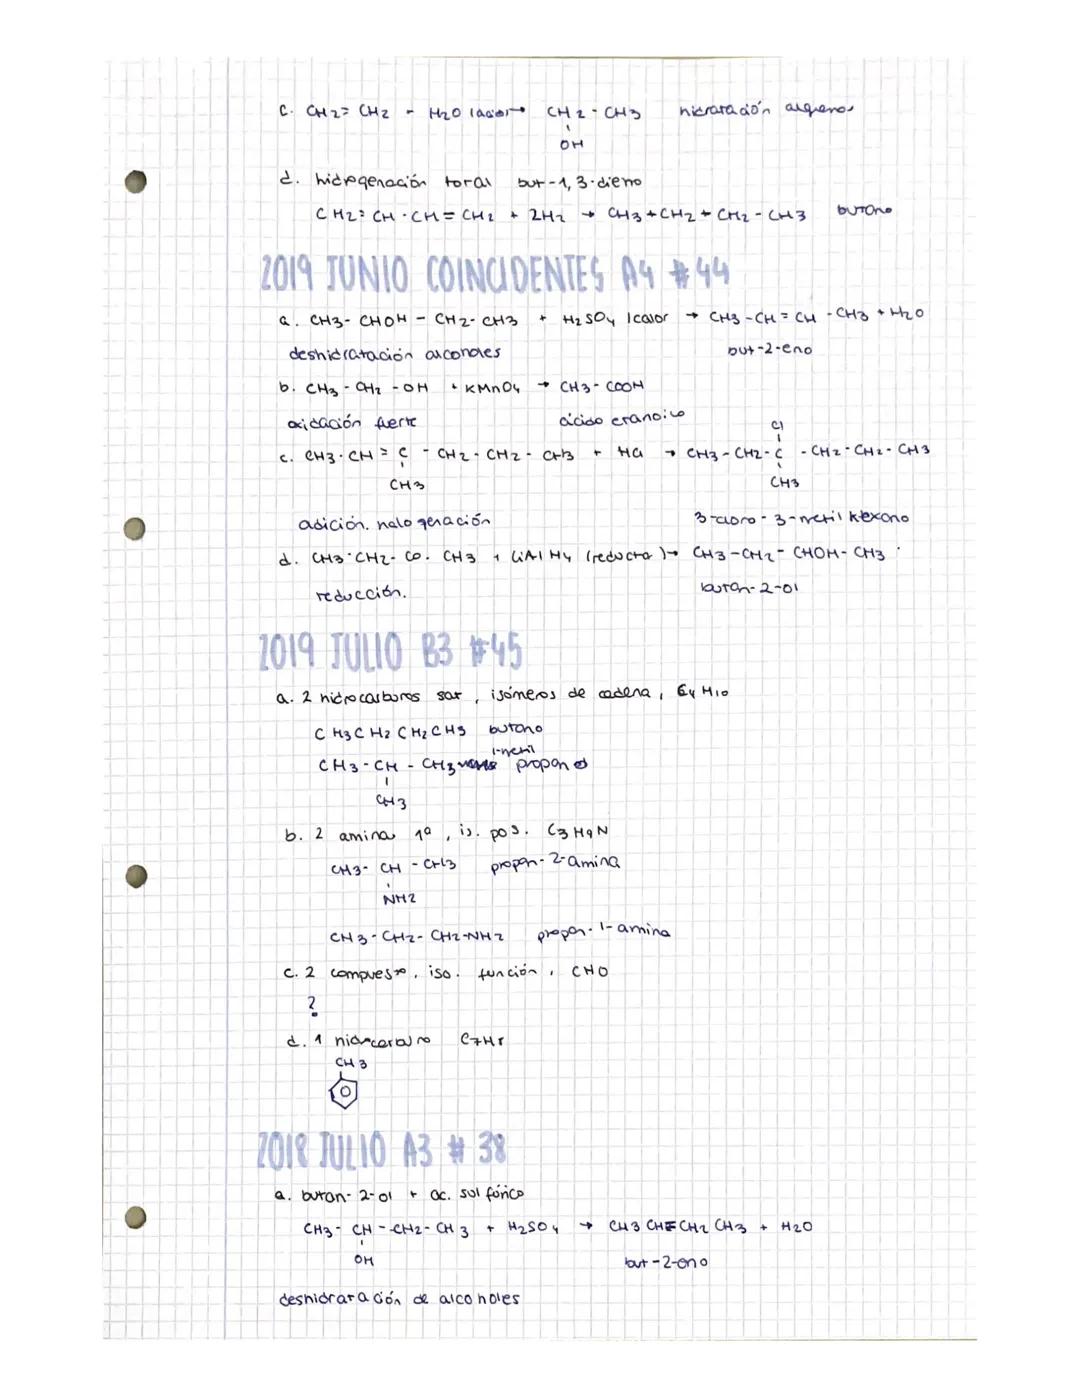 c. CH2=CH2 - H2O (calor→ CH2-CH3 hidratación alquenos
OH
d. hidrogenación total but-1,3-dieno
CH2=CH·CH=CH2 + 2H2 → CH3+CH2+CH2-CH3 butano
2019 JUNIO COINCIDENTES A4 #44
a. CH3-CHOH-CH2-CH3 + H2SO4 /calor → CH3-CH=CH-CH3+H2O
deshidratación alcoholes but-2-eno
b. CH3-CH2-OH + KMnO4 → CH3-COOH
oxidación fuerte ácido etanoico
Cl
c. CH3·CH=C-CH2-CH2-CH3 + HCl → CH3-CH2-C-CH2-CH2-CH3
CH3 CH3
adición. halogenación 3-cloro-3-metil hexano
d. CH3·CH2-CO-CH3 + LiAlH4 (reductor)→ CH3-CH2-CHOH-CH3
reducción. butan-2-ol
2019 JULIO B3 #45
a. 2 hidrocarburos sat, isómeros de cadena, C4H10
CH3CH2CH2CH3 butano
1-metil
CH3-CH-CH3 propano
CH3
b. 2 aminas 1ª, is. pos. C3H9N
CH3-CH-CH3 propan-2-amina
NH2
CH3-CH2-CH2-NH2 propan-1-amina
c. 2 compuesto, iso. función, CHO
?
d. 1 hidrocarburo C7H8
CH3
2018 JULIO A3 #38
a. butan-2-ol + ac. sulfúrico
CH3-CH-CH2-CH3 + H2SO4 → CH3CH=CH2CH3 + H2O
OH but-2-eno
deshidratación de alcoholes